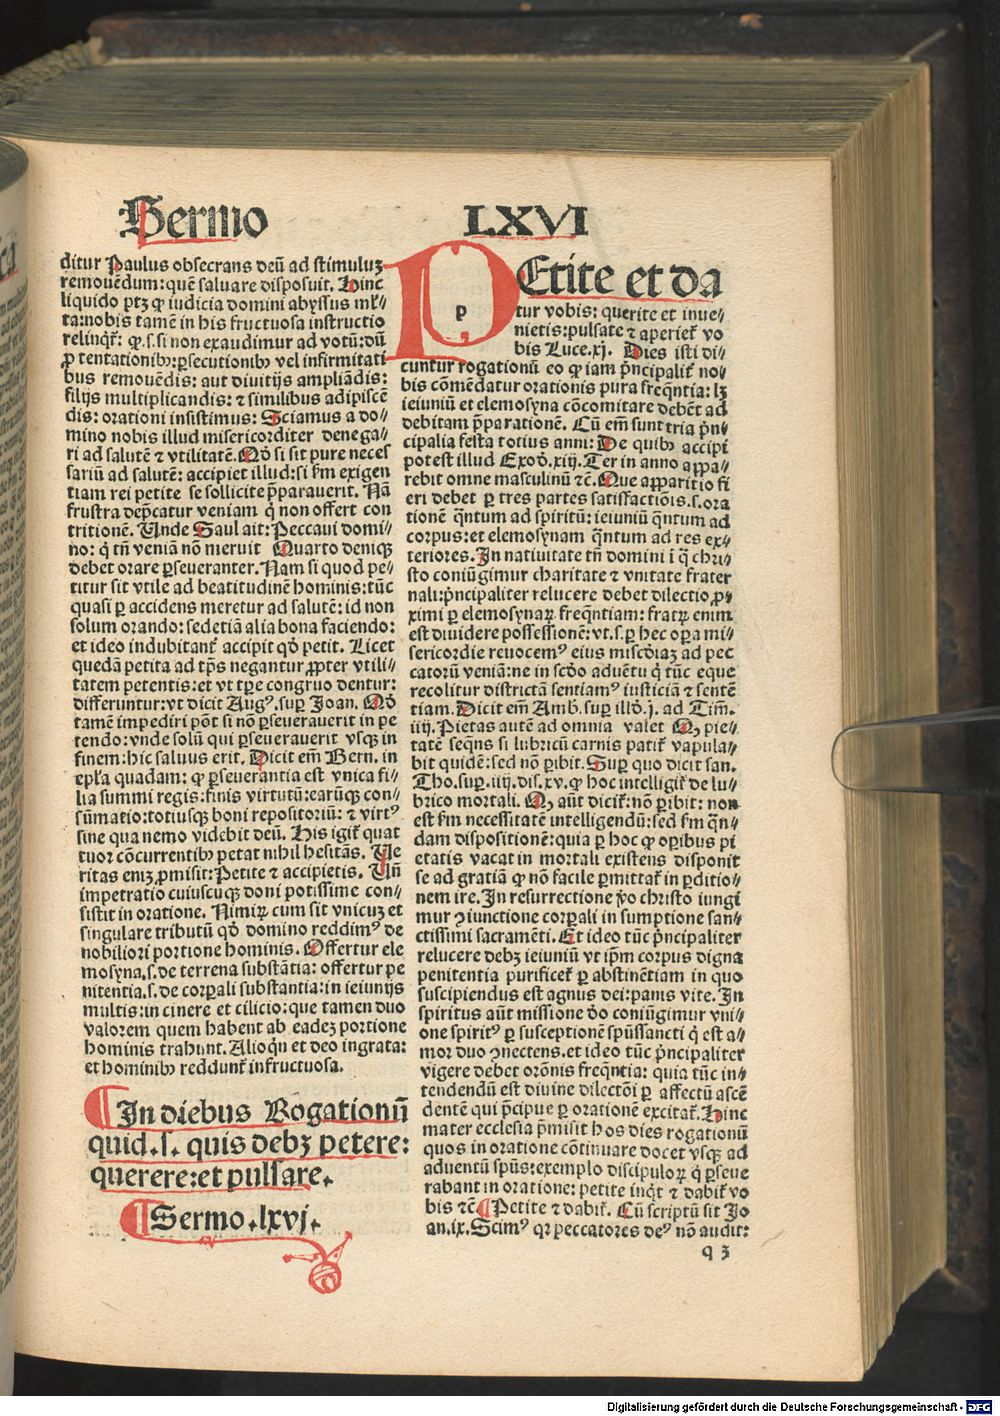 Sermo LXVI
ditur Paulus obsecrans deū ad stimuluꝫ
remouēdum: quē saluare disposuit. Hinc
liquido ptꝫ ꝙ iudicia domini abyssus ml̓⸗
ta: nobis tamē in his fructuosa instructio
relinqt̄: ꝙ.s. si non exaudimur ad votū: dū
ꝓ tentationibꝰ: ꝑsecutionibꝰ vel infirmitati
bus remouēdis: aut diuitijs ampliādis:
filijs multiplicandis: ⁊ similibus adipiscē
dis: orationi insistimus: Sciamus a do⸗
mino nobis illud misericorditer denega⸗
ri ad salutē ⁊ vtilitatē. Qō si sit pure neces
sariū ad salutē: accipiet illud: si ẜm exigen
tiam rei petite se sollicite p̄parauerit. Nā
frustra dep̄catur veniam q̇ non offert con
tritionē. Unde Saul ait: Peccaui domi⸗
no: q̇ tn̄ veniā nō meruit Quarto deniqꝫ
debet orare ꝑseueranter. Nam si quod pe⸗
titur sit vtile ad beatitudinē hominis: tūc
quasi ꝑ accidens meretur ad salutē: id non
solum orando: sed etiā alia bona faciendo:
et ideo indubitant̄ accipit qō petit. Licet
quedā petita ad tp̄s negantur ꝓpter vtili⸗
tatem petentis: et vt tꝑe congruo dentur:
differuntur: vt dicit Augꝰ. suꝑ Joan. Qō
tamē impediri pōt si nō ꝑseuerauerit in pe
tendo: vnde solū qui ꝑseuerauerit vsqꝫ in
finem: hic saluus erit. Dicit em̄ Bern. in
epl̓a quadam: ꝙ ꝑseuerantia est vnica fi⸗
lia summi regis: finis virtutū: earūqꝫ con⸗
sūmatio: totiusqꝫ boni repositoriū: ⁊ virtꝰ
sine qua nemo videbit deū. His igit̄ quat
tuor cōcurrentibꝰ petat nihil hesitās. Ue
ritas eniꝫ ꝓmisit: Petite ⁊ accipietis. Un̄
impetratio cuiuscuqꝫ doni potissime con⸗
sistit in oratione. Nimiꝝ cum sit vnicuꝫ et
singulare tributū qō domino reddimꝰ de
nobiliori portione hominis. Offertur ele
mosyna.s. de terrena substātia: offertur pe
nitentia.s. de corꝑali substantia: in ieiunijs
multis: in cinere et cilicio: que tamen duo
valorem quem habent ab eadeꝫ portione
hominis trahunt. Alioq̇n et deo ingrata:
et hominibꝰ reddunt̄ infructuosa.
¶ In diebus Rogationū
quid.s. quis debꝫ petere:
querere: et pulsare.
¶ Sermo.lxvj.
p
PEtite et da
tur vobis: querite et inue⸗
nietis: pulsate ⁊ aperiet̄ vo
bis Luce.xj. Dies isti di⸗
cuntur rogationū eo ꝙ iam p̄ncipalit̄ no⸗
bis cōmēdatur orationis pura freq̄ntia: lꝫ
ieiuniū et elemosyna cōcomitare debēt ad
debitam p̄parationē. Cū em̄ sunt tria p̄n⸗
cipalia festa totius anni: De quibꝰ accipi
potest illud Exod̄.xiij. Ter in anno appa⸗
rebit omne masculinū ⁊c̄. Que apparitio fi
eri debet ꝑ tres partes satisfactiōis.s. ora
tionē q̄ntum ad spiritū: ieiuniū q̄ntum ad
corpus: et elemosynam q̄ntum ad res ex⸗
teriores. In natiuitate tn̄ domini i q̇ chri⸗
sto coniūgimur charitate ⁊ vnitate frater
nali: p̄ncipaliter relucere debet dilectio ꝓ⸗
ximi ꝑ elemosynaꝝ freq̄ntiam: fratꝝ enim
est diuidere possessionē: vt.s. ꝑ hec oꝑa mi⸗
sericordie reuocemꝰ eius miscd̓iaꝫ ad pec
catorū veniā: ne in scd̓o aduētu q̇ tūc eque
recolitur districtā sentiamꝰ iusticiā ⁊ sentē
tiam. Dicit em̄ Amb. suꝑ illd̓.j. ad Tim̄.
iiij. Pietas autē ad omnia valet Qꝫ pie⸗
tatē seq̄ns si lubricū carnis patit̄ vapula⸗
bit quidē: sed nō ꝑibit. Suꝑ quo dicit san.
Tho. suꝑ.iiij.dis.xv. ꝙ hoc intelligit̄ de lu⸗
brico mortali. Qꝫ aūt dicit̄: nō ꝑibit: non
est ẜm necessitatē intelligendū: sed ẜm q̄n⸗
dam dispositionē: quia ꝑ hoc ꝙ oꝑibus pi
etatis vacat in mortali existens disponit
se ad gratiā ꝙ nō facile ꝑmittat̄ in ꝑditio⸗
nem ire. In resurrectione v̓o christo iungi
mur ꝯiunctione corꝑali in sumptione san⸗
ctissimi sacramēti. Et ideo tūc p̄ncipaliter
relucere debꝫ ieiuniū vt ip̄m corpus digna
penitentia purificet̄ ꝑ abstinētiam in quo
suscipiendus est agnus dei: panis vite. In
spiritus aūt missione v̓o coniūgimur vni⸗
one spiritꝰ ꝑ susceptionē sp̄ussancti q̇ est a⸗
mor duo ꝯnectens. et ideo tūc p̄ncipaliter
vigere debet orōnis freq̄ntia: quia tūc in⸗
tendendū est diuine dilectōi ꝑ affectū ascē
dentē qui p̄cipue ꝑ orationē excitat̄. Hinc
mater ecclesia p̄misit hos dies rogationū
quos in oratione cōtinuare docet vsqꝫ ad
aduentū sp̄us: exemplo discipuloꝝ q̇ ꝑseue
rabant in oratione: petite inq̇t ⁊ dabit̄ vo
bis ⁊c̄ ¶ Petite ⁊ dabit̄. Cū scriptū sit Jo
an.ix. Scimꝰ qꝛ peccatores deꝰ nō audit:
q 3
Digitalisierung gefördert durch die Deutsche Forschungsgemeinschaft - DFG